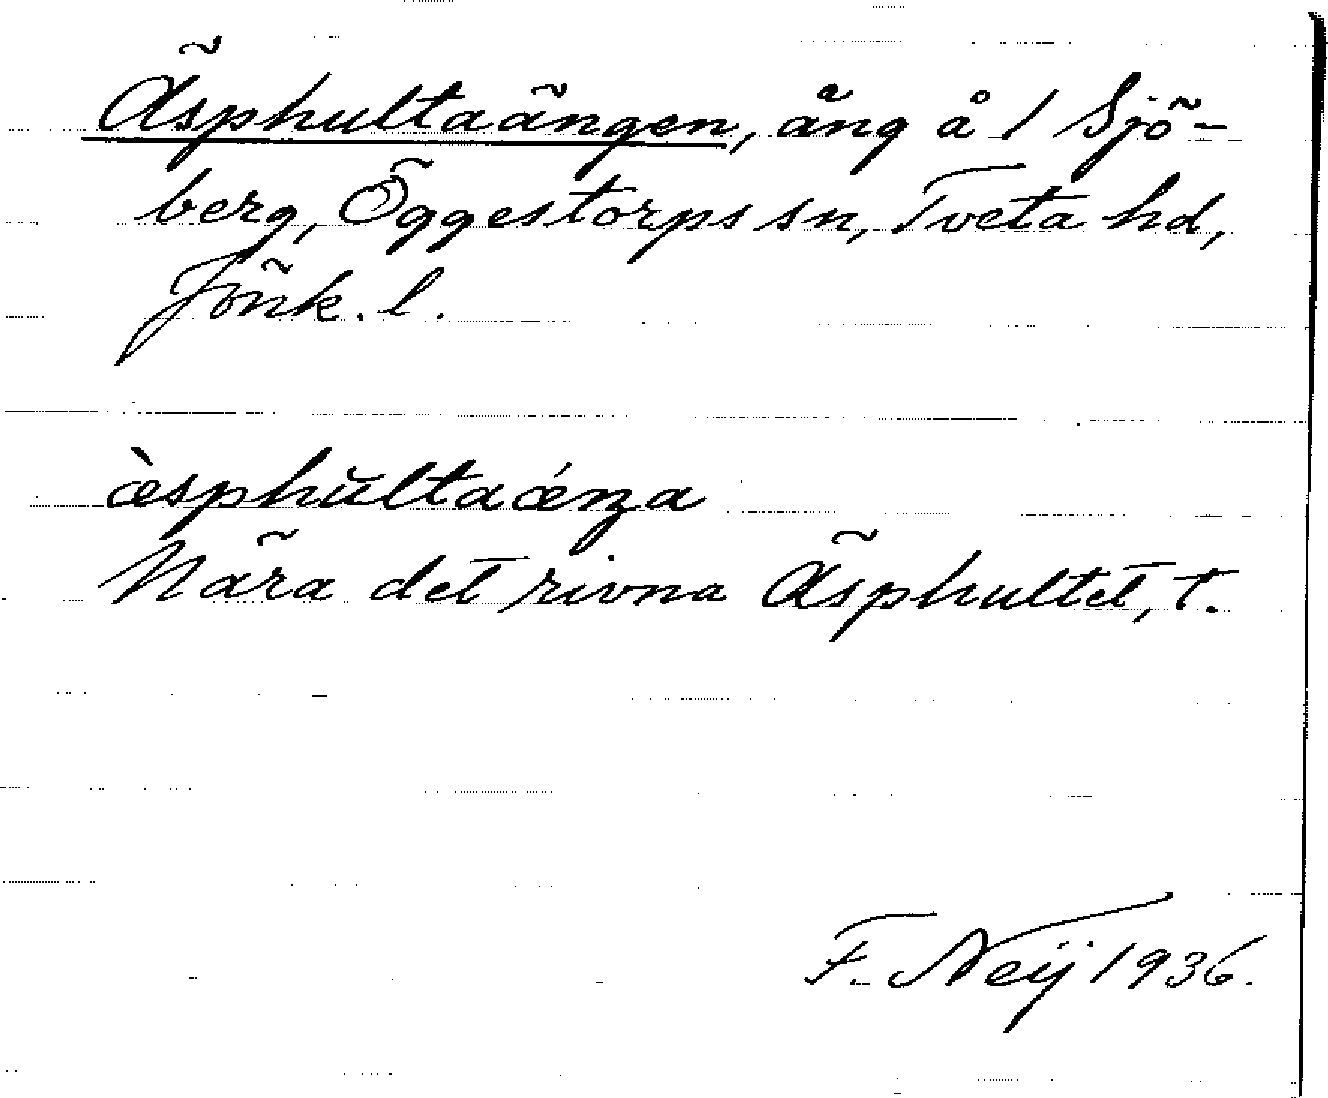 Äsphultaängen, äng å 1 Sjö-
berg, Öggestorps sn, Tveta hd,
Jönk. l.
æ̀sphŭltaǽŋa
Nära det rivna Äsphultet, t.
F. Neij 1936.